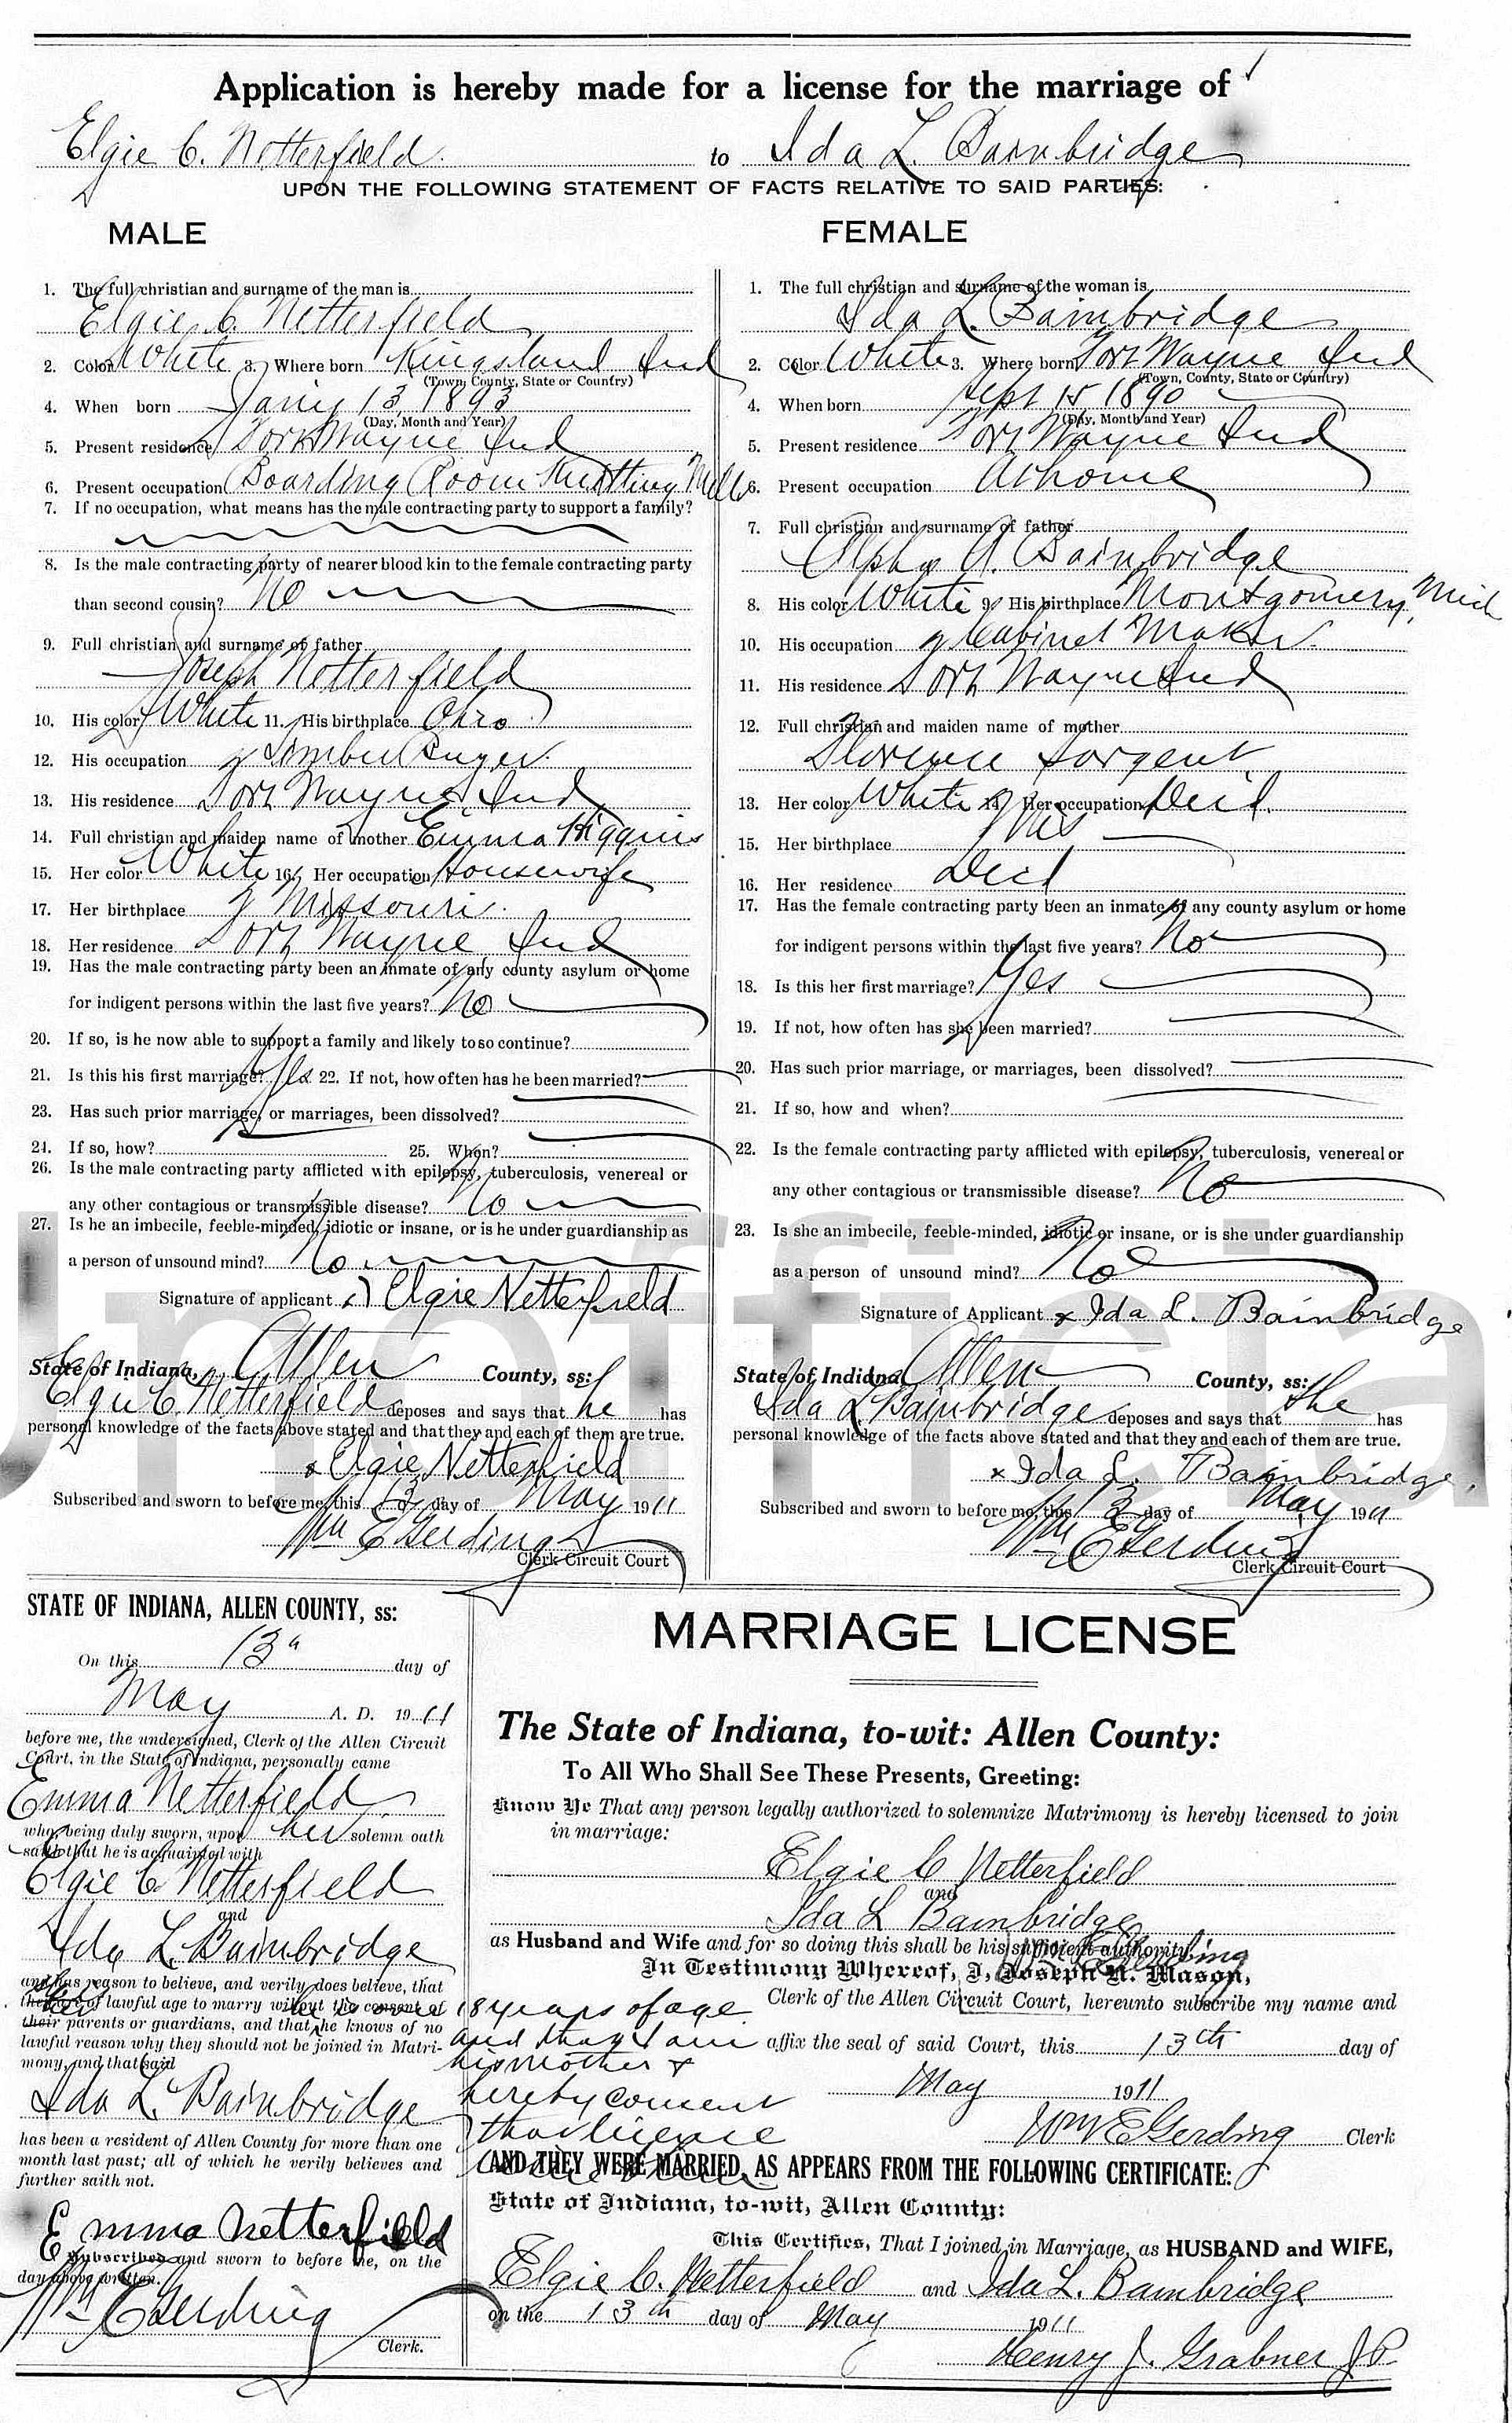 Application is hereby made for a license for the marriage of
Elgie C. Netterfield to Ida L. Bainbridge
UPON THE FOLLOWING STATEMENT OF FACTS RELATIVE TO SAID PARTIES:
MALE
1. The full christian and surname of the man is
Elgie C. Netterfield
2. Color White 3. Where born Kingsland Ind
(Town, County, State or Country)
4. When born Jany 13, 1893
(Day, Month and Year)
5. Present residence Fort Wayne Ind
6. Present occupation Boarding Room Knitting Mills
7. If no occupation, what means has the male contracting party to support a family?
8. Is the male contracting party of nearer blood kin to the female contracting party
than second cousin? No
9. Full christian and surname of father
Joseph Netterfield
10. His color White 11. His birthplace Ohio
12. His occupation Timber Buyer
13. His residence Fort Wayne, Ind
14. Full christian and maiden name of mother Emma Higgins
15. Her color White 16. Her occupation Housewife
17. Her birthplace Missouri
18. Her residence Fort Wayne Ind
19. Has the male contracting party been an inmate of any county asylum or home
for indigent persons within the last five years? No
20. If so, is he now able to support a family and likely to so continue?
21. Is this his first marriage? Yes 22. If not, how often has he been married?
23. Has such prior marriage, or marriages, been dissolved?
24. If so, how? 25. When?
26. Is the male contracting party afflicted with epilepsy, tuberculosis, venereal or
any other contagious or transmissible disease? No
27. Is he an imbecile, feeble-minded, idiotic or insane, or is he under guardianship as
a person of unsound mind? No
Signature of applicant x Elgie Netterfield
State of Indiana, Allen County, ss:
Elgie C. Netterfield deposes and says that he has
personal knowledge of the facts above stated and that they and each of them are true.
x Elgie Netterfield
Subscribed and sworn to before me, this 13 day of May 1911
Wm E Gerding
Clerk Circuit Court
FEMALE
1. The full christian and surname of the woman is
Ida L. Bainbridge
2. Color White 3. Where born Fort Wayne Ind
(Town, County, State or Country)
4. When born Sept 15 1890
(Day, Month and Year)
5. Present residence Fort Wayne Ind
6. Present occupation At home
7. Full christian and surname of father
A. Bainbridge
8. His color White 9. His birthplace Montgomery, Mich
10. His occupation Cabinet Maker
11. His residence Fort Wayne Ind
12. Full christian and maiden name of mother
Florence Sargent
13. Her color White 14. Her occupation Dec'd.
15. Her birthplace
16. Her residence Decd
17. Has the female contracting party been an inmate of any county asylum or home
for indigent persons within the last five years? No
18. Is this her first marriage? Yes
19. If not, how often has she been married?
20. Has such prior marriage, or marriages, been dissolved?
21. If so, how and when?
22. Is the female contracting party afflicted with epilepsy, tuberculosis, venereal or
any other contagious or transmissible disease? No
23. Is she an imbecile, feeble-minded, idiotic or insane, or is she under guardianship
as a person of unsound mind? No
Signature of Applicant x Ida L. Bainbridge
State of Indiana Allen County, ss:
Ida L Bainbridge deposes and says that she has
personal knowledge of the facts above stated and that they and each of them are true.
x Ida L. Bainbridge
Subscribed and sworn to before me, this 13 day of May 1911
Wm E Gerding
Clerk Circuit Court
Unofficial
STATE OF INDIANA, ALLEN COUNTY, ss:
On this 13th day of
May A. D. 1911
before me, the undersigned, Clerk of the Allen Circuit
Court, in the State of Indiana, personally came
Emma Netterfield
who, being duly sworn, upon her solemn oath
saith that he is acquainted with
Elgie C. Netterfield
and
Ida L. Bainbridge
and has reason to believe, and verily does believe, that
they are of lawful age to marry without the consent of
their parents or guardians, and that he knows of no
lawful reason why they should not be joined in Matri-
mony, and that said
Ida L. Bainbridge
has been a resident of Allen County for more than one
month last past; all of which he verily believes and
further saith not.
18 years of age
and that I am
his mother &
hereby consent
that license
Emma Netterfield
Subscribed and sworn to before me, on the
day above written.
Wm E Gerding
Clerk.
MARRIAGE LICENSE
The State of Indiana, to-wit: Allen County:
To All Who Shall See These Presents, Greeting:
Know Ye That any person legally authorized to solemnize Matrimony is hereby licensed to join
in marriage:
Elgie C Netterfield
and
Ida L Bainbridge
as Husband and Wife and for so doing this shall be his sufficient authority.
In Testimony Whereof, I, Joseph A. Mason, Wm E Gerding
Clerk of the Allen Circuit Court, hereunto subscribe my name and
affix the seal of said Court, this 13th day of
May 1911
Wm E Gerding Clerk
AND THEY WERE MARRIED, AS APPEARS FROM THE FOLLOWING CERTIFICATE:
State of Indiana, to-wit, Allen County:
This Certifies, That I joined in Marriage, as HUSBAND and WIFE,
Elgie C. Netterfield and Ida L. Bainbridge
on the 13th day of May 1911
Henry J. Grabner J P